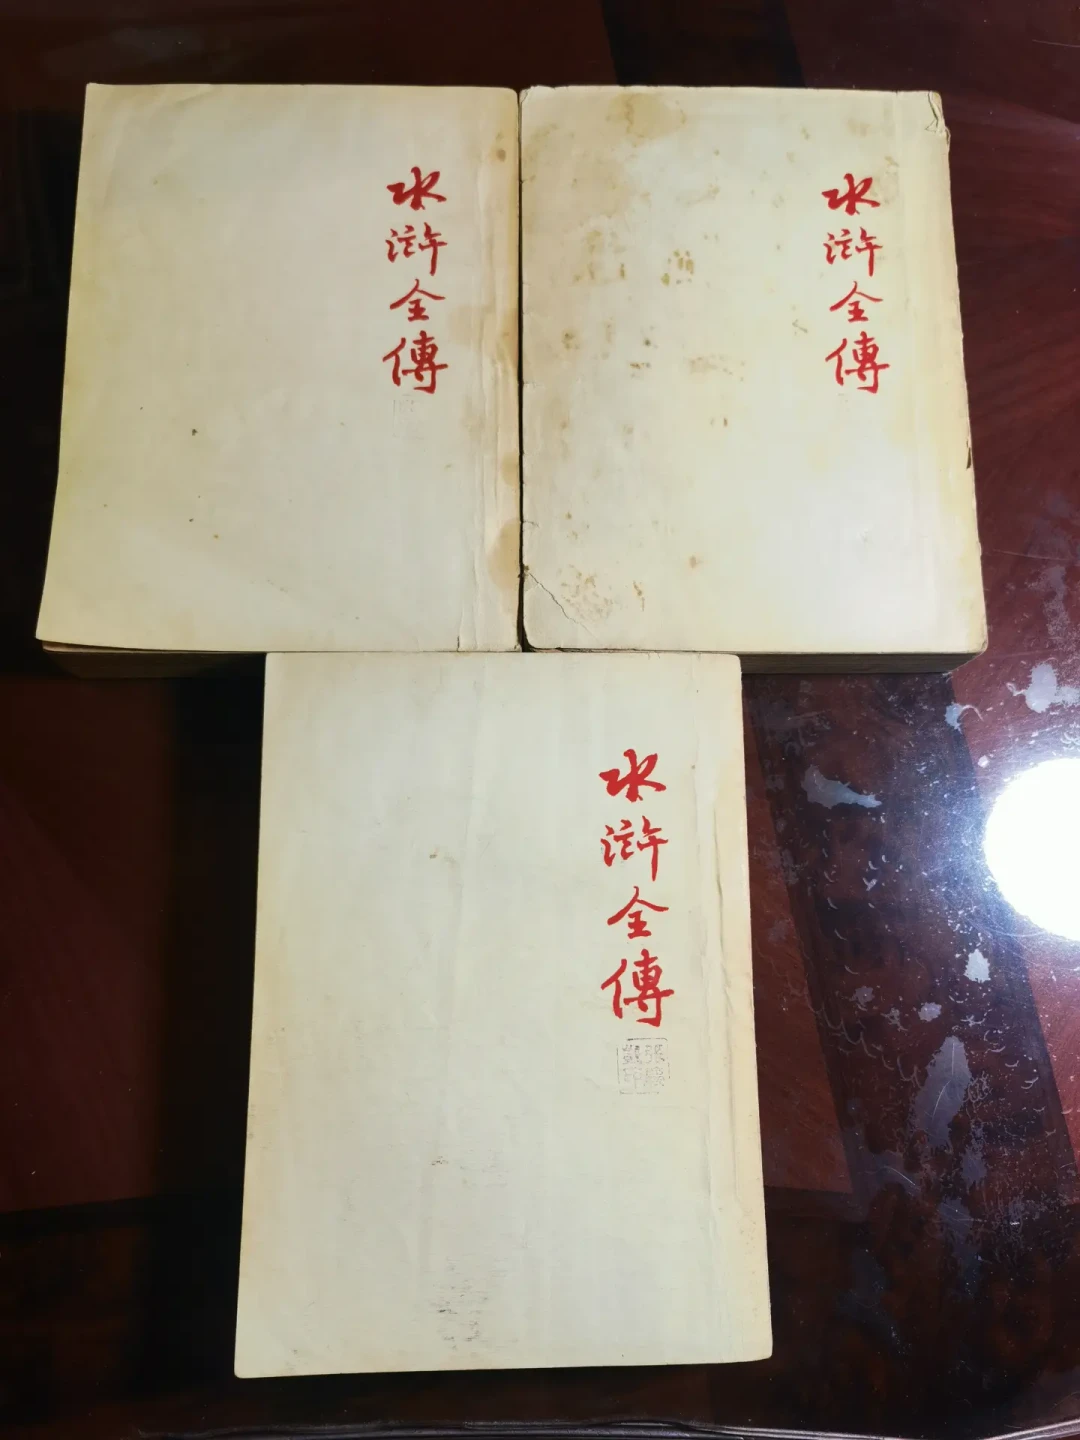 水滸全傳
水滸全傳
水滸全傳